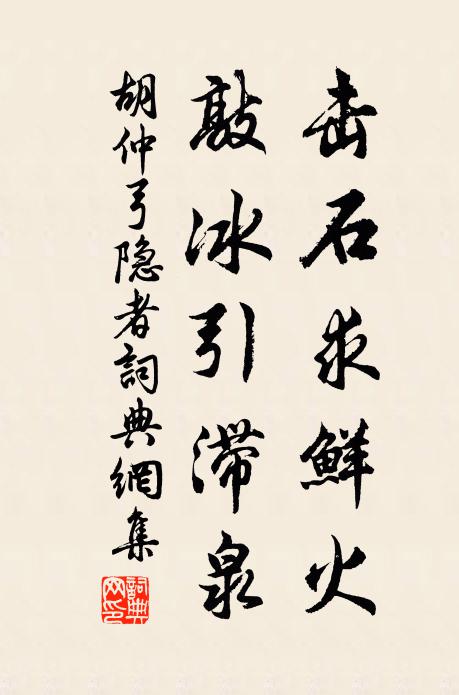 击石求鲜火
敲冰引滞泉
胡仲弓隐者詞典網集
詞典网印